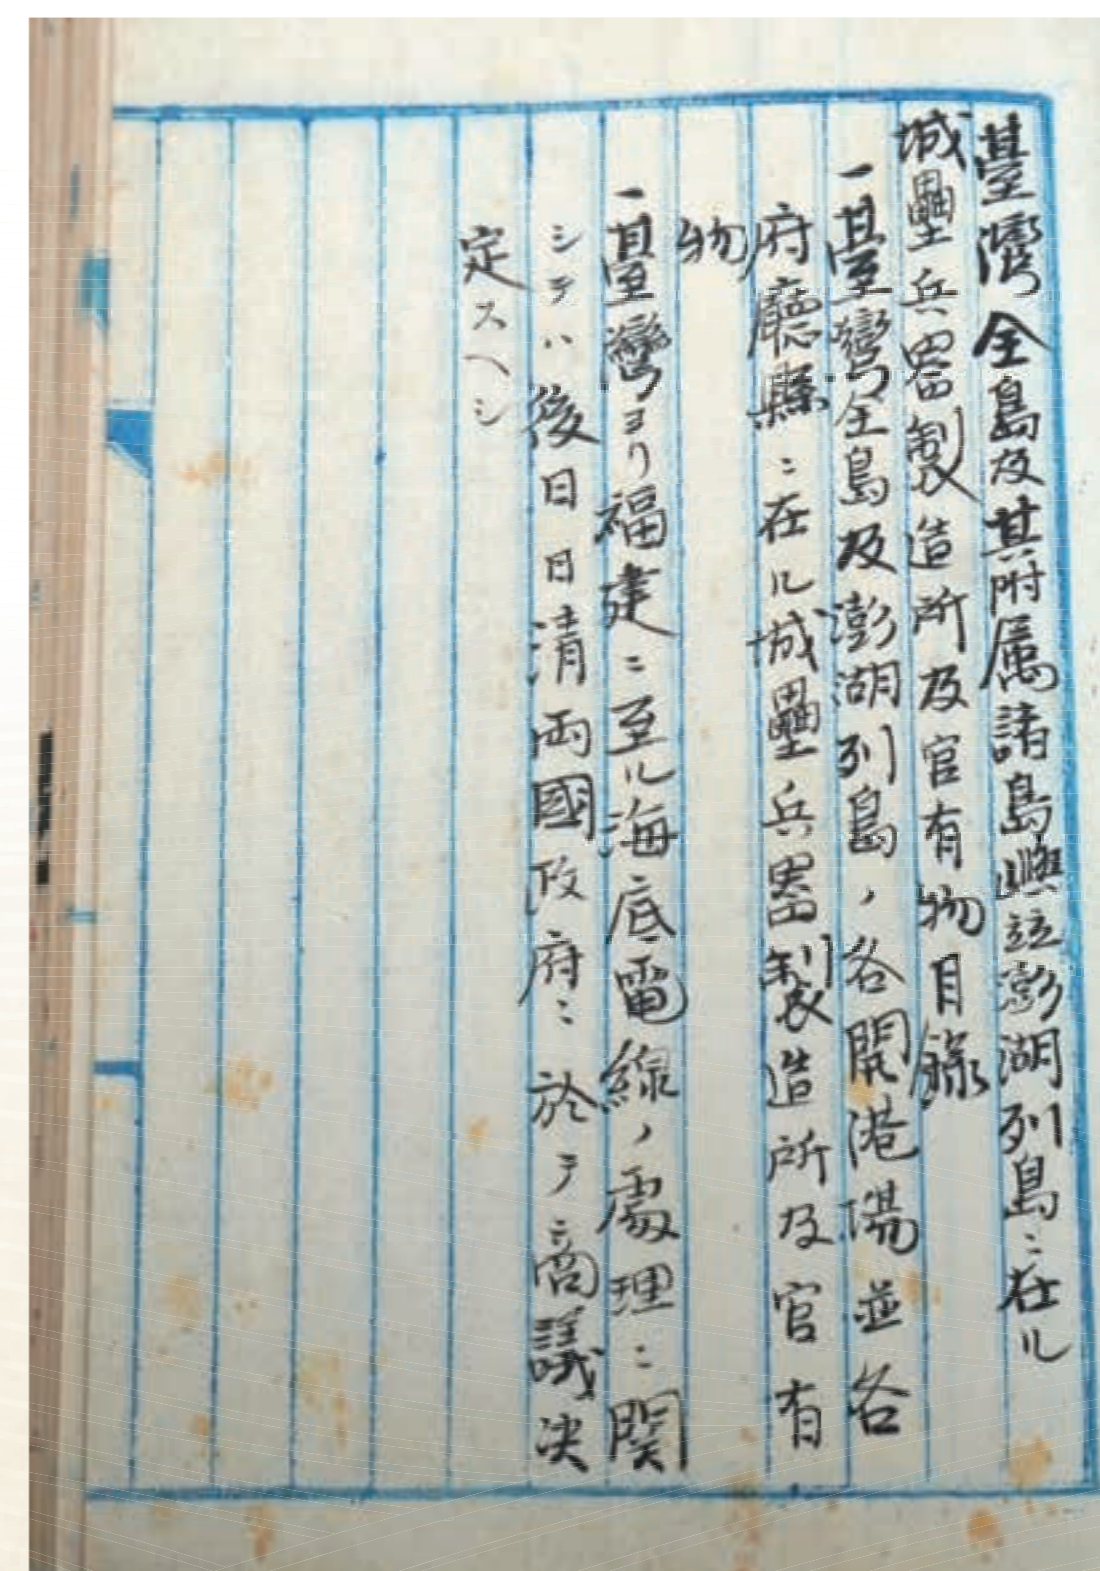 臺灣全島及其附属諸島嶼竝澎湖列島ニ在ル
城壘兵器製造所及官有物目録
一臺灣全島及澎湖列島ノ各開港場並各
府廳縣ニ在ル城壘兵器製造所及官有
物
一臺灣ヨリ福建ニ至ル海底電線ノ處理ニ関
シテハ後日日清両國政府ニ於テ商議决
定スヘシ